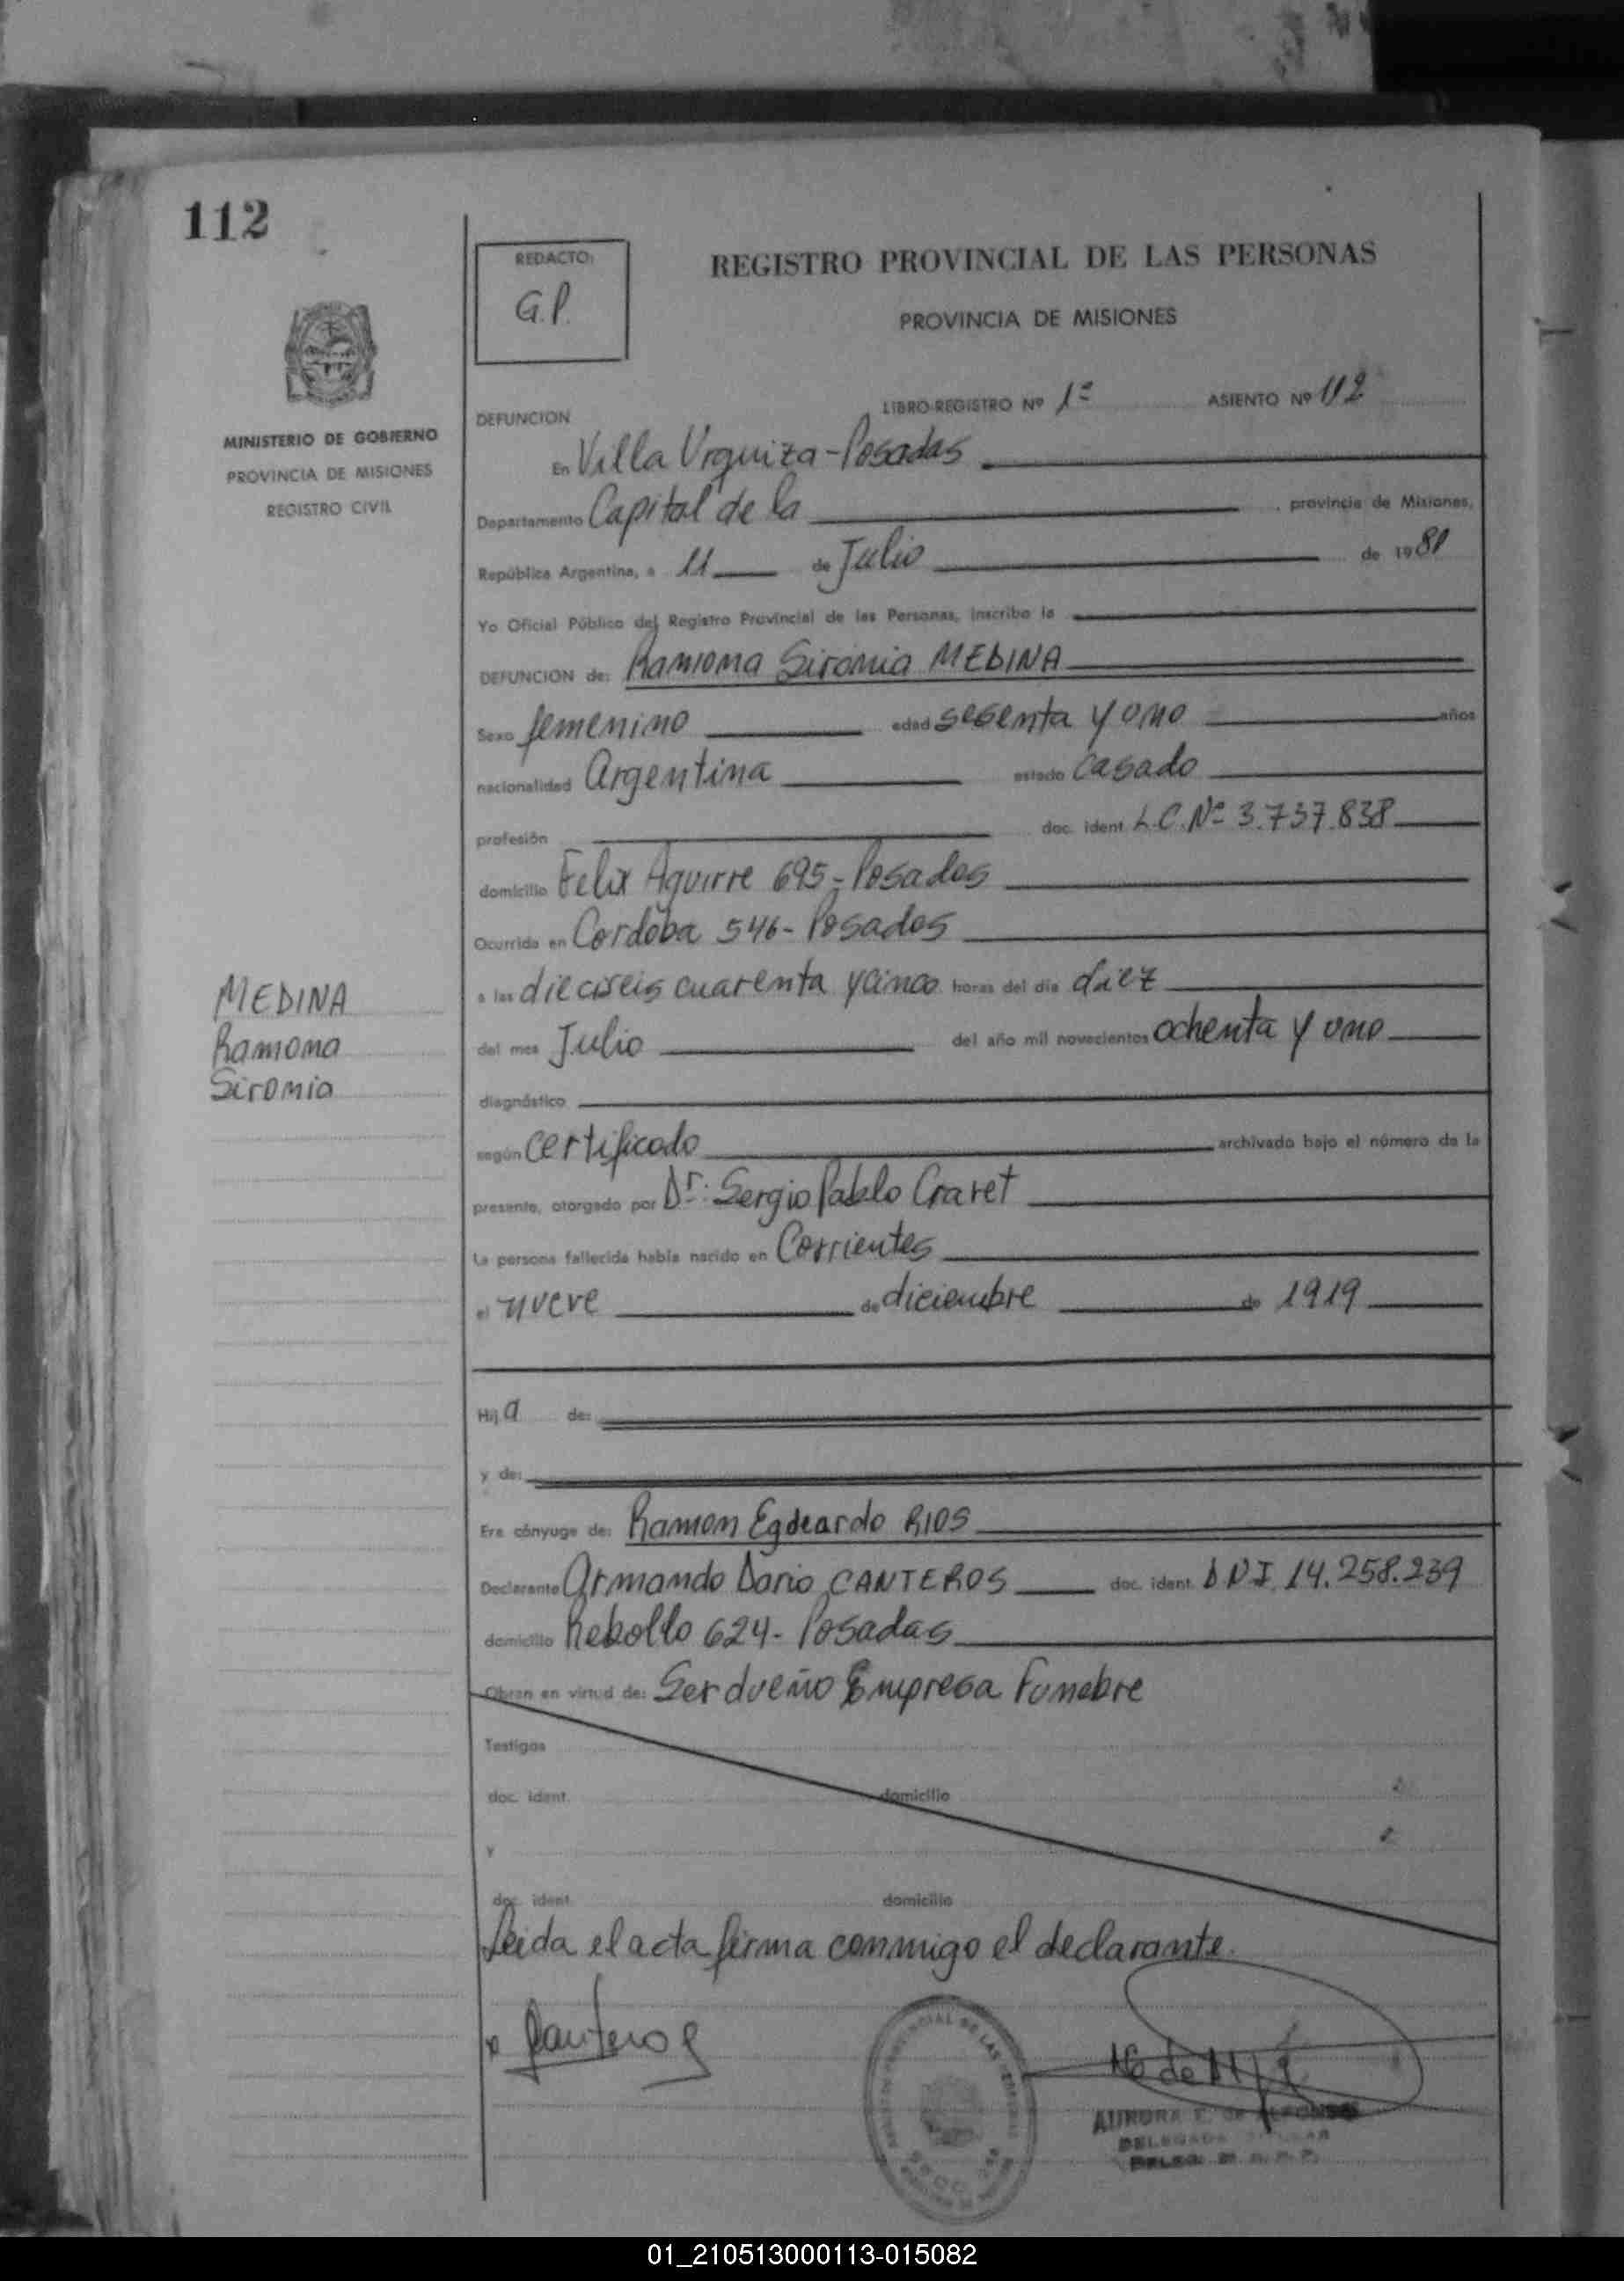 112
REDACTO:
G.P.
REGISTRO PROVINCIAL DE LAS PERSONAS
PROVINCIA DE MISIONES
MINISTERIO DE GOBIERNO
PROVINCIA DE MISIONES
REGISTRO CIVIL
DEFUNCION
LIBRO-REGISTRO Nº 1º ASIENTO Nº 112
En Villa Urquiza - Posadas
Departamento Capital de la , provincia de Misiones,
República Argentina, a 11 de Julio de 1981
Yo Oficial Público del Registro Provincial de las Personas, inscribo la
DEFUNCION de: Ramona Sironia MEDINA
Sexo femenino edad sesenta y uno años
nacionalidad Argentina estado casado
profesión doc. ident. L.C. Nº 3.737.838
domicilio Felix Aguirre 695 - Posadas
Ocurrida en Cordoba 546 - Posadas
a las dieciseis cuarenta y cinco horas del día diez
del mes Julio del año mil novecientos ochenta y uno
MEDINA
Ramona
Sironia
diagnóstico
según certificado archivado bajo el número de la
presente, otorgado por Dr: Sergio Pablo Cravet
La persona fallecida había nacido en Corrientes
el nueve de diciembre de 1919
Hija de:
y de:
Era cónyuge de: Ramon Egdeardo RIOS
Declarante Armando Dario CANTEROS doc. ident. DNI 14.258.239
domicilio Rebollo 624 - Posadas
Obran en virtud de: Ser dueño Empresa Funebre
Testigos
doc. ident. domicilio
y
doc. ident. domicilio
Leida el acta firma conmigo el declarante.
Canteros
AURORA E. DE ALFONSO
DELEGADA TITULAR
01_210513000113-015082